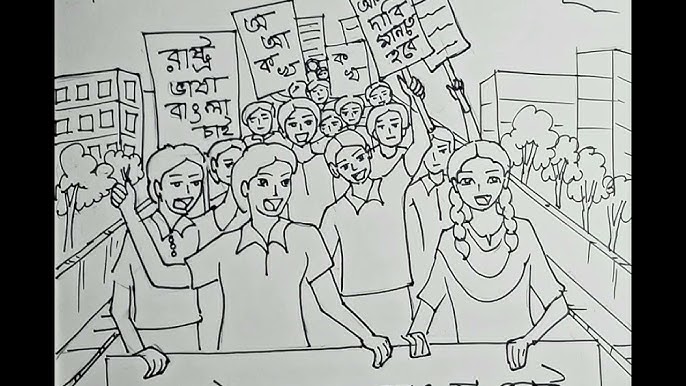 রাষ্ট্র
ভাষা
বাংলা
চাই
অ
আ
ক খ
ক খ
দাবি
মানতে
হবে